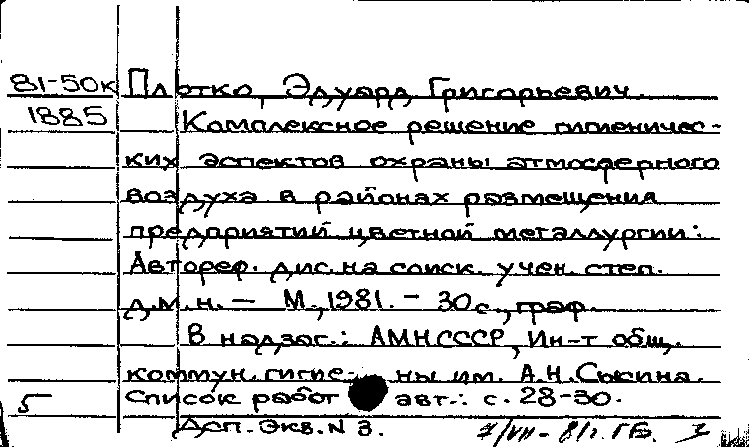 81-50к Плотко, Эдуард Григорьевич.
1885 Комплексное решение гигиеничес-
ких аспектов охраны атмосферного
воздуха в районах размещения
предприятий цветной металлургии:
Автореф. дис. на соиск. учен. степ.
д.м.н. — М., 1981. - 30 с., граф.
В надзаг.: АМН СССР, Ин-т общ.
коммун. гигие- ны им. А.Н. Сысина.
5 Список работ авт.: с. 28-30.
Дсп. Экз. N 3. 7/VII-81г. ГБ.